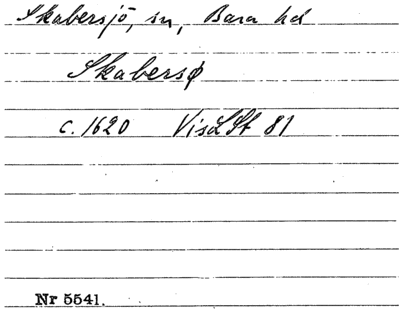 Skabersjö, sn, Bara hd
Skabersø
c. 1620 VisLSt 81
Nr 5541.